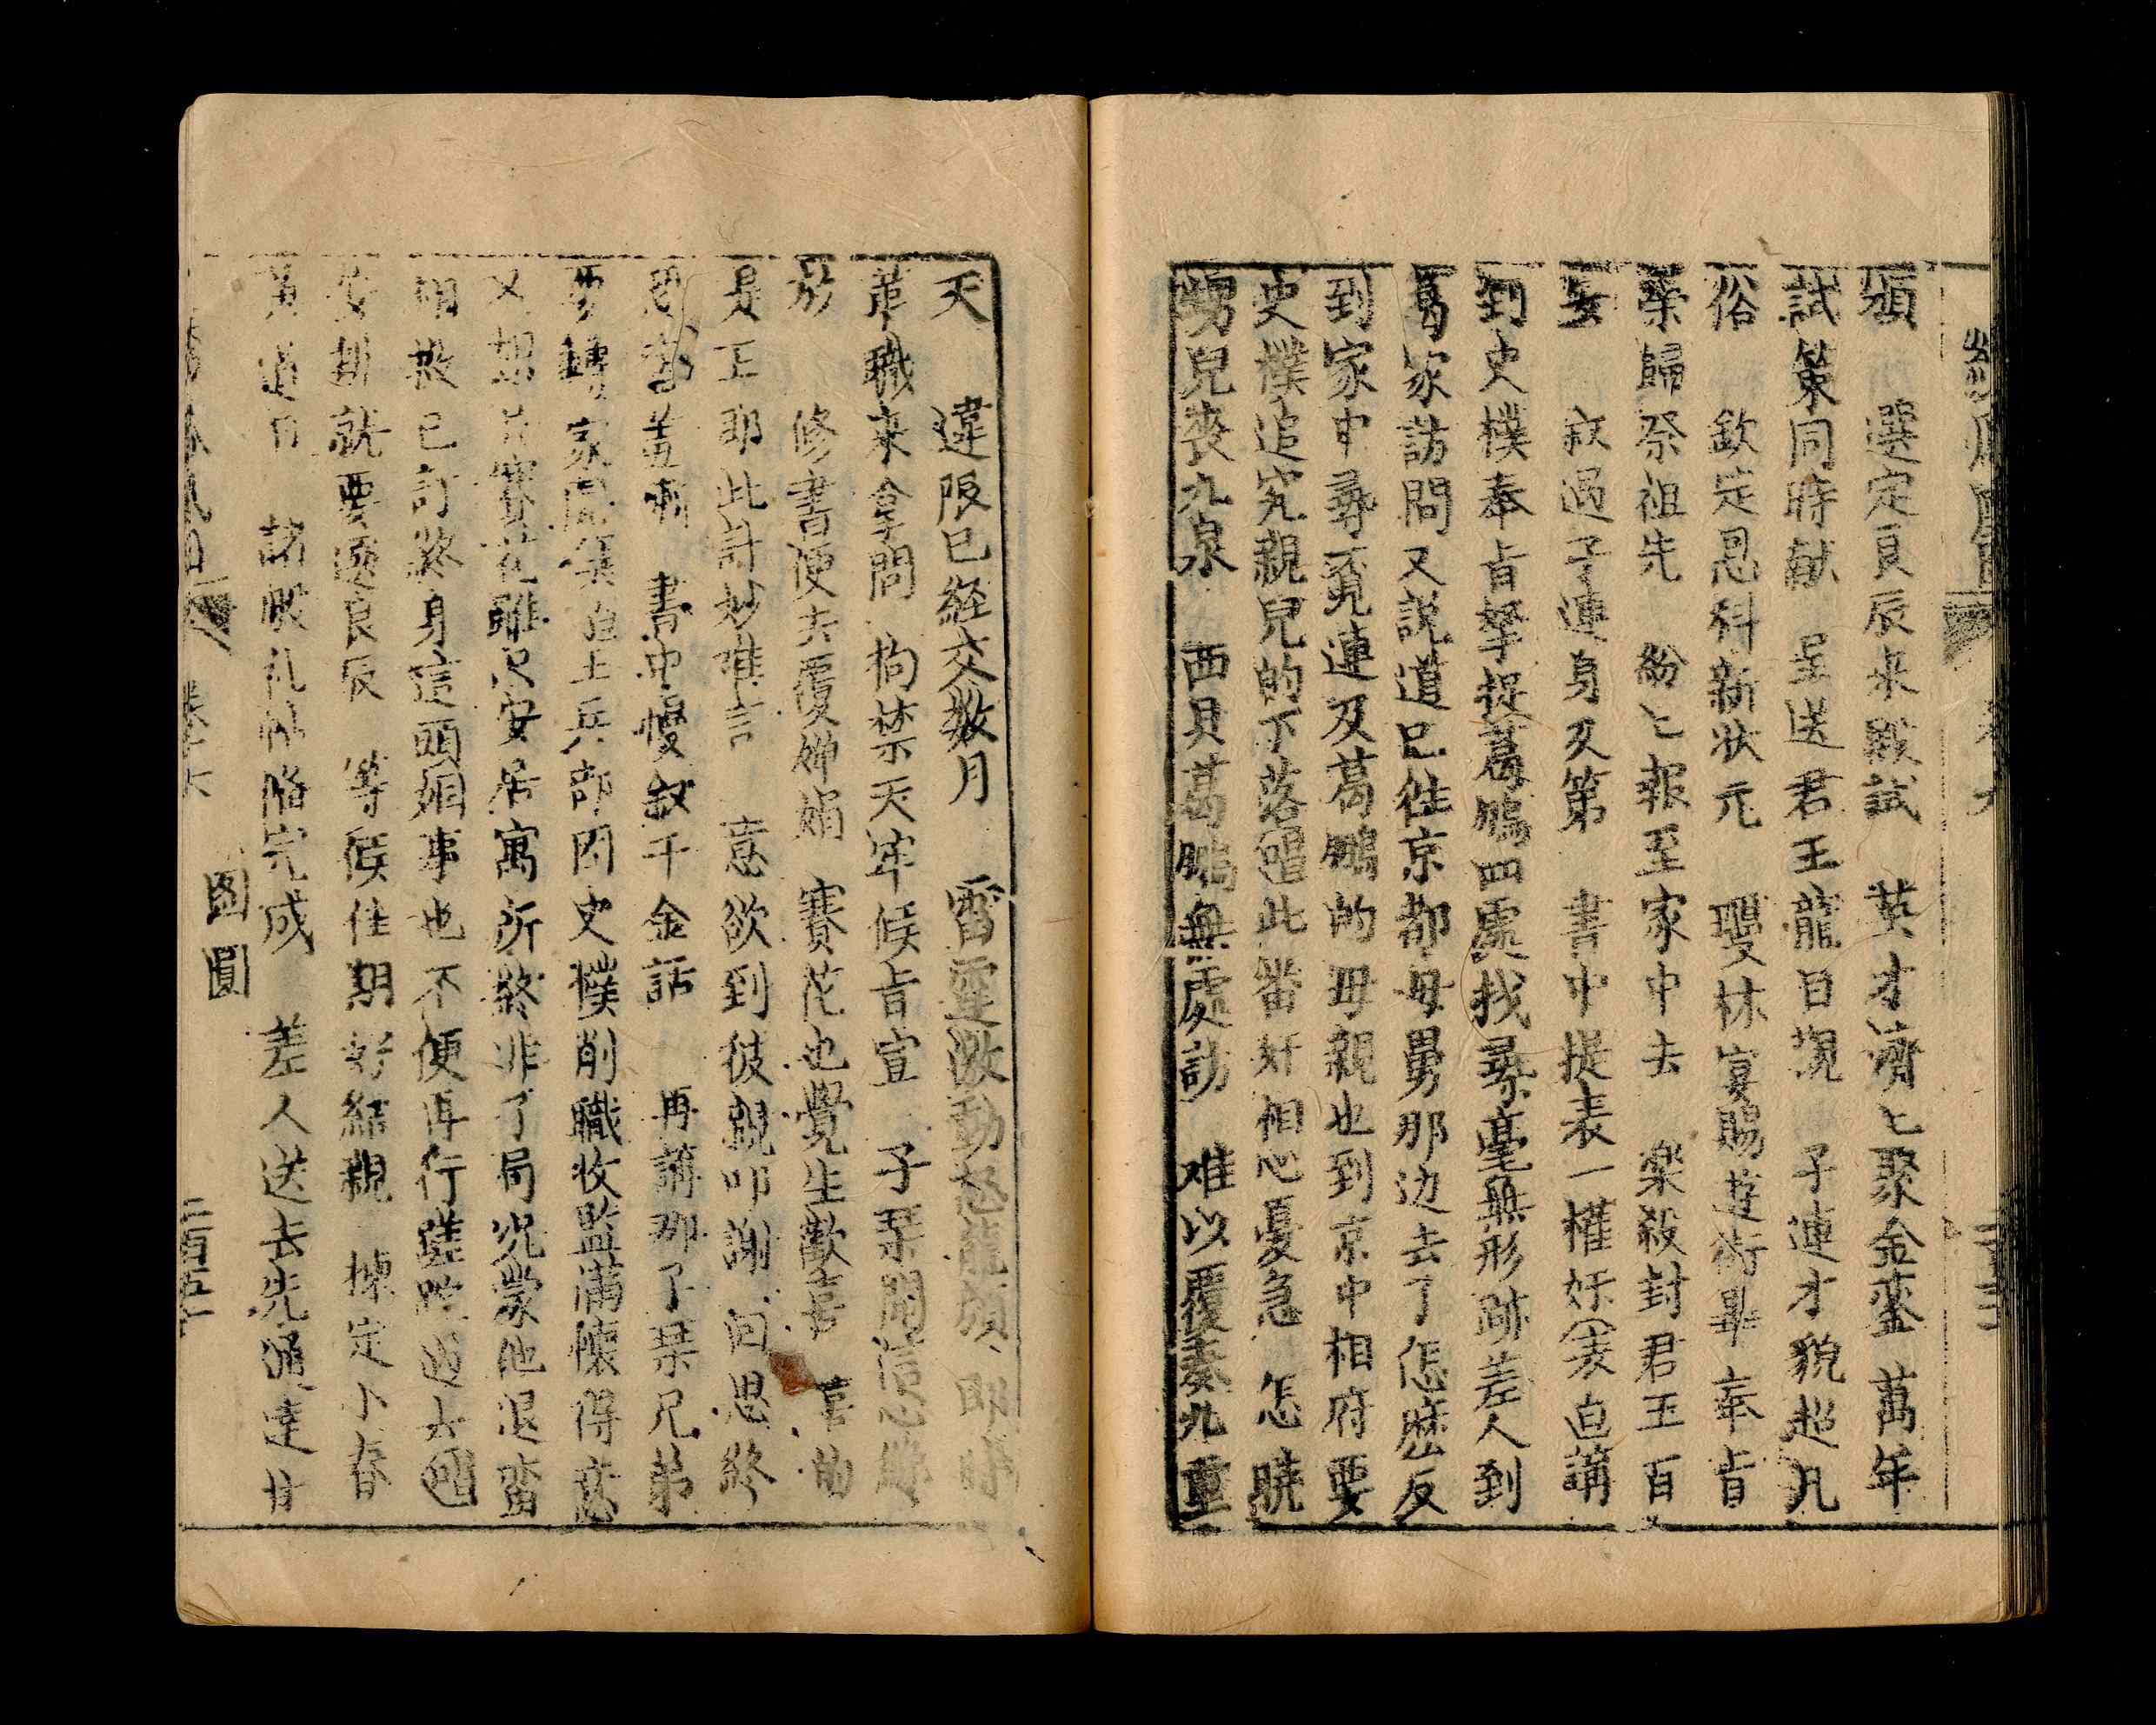 須 選定良辰来殿試 英才濟七聚金鑾 萬年
試策同時献 呈送君王龍目覌 子連才貌超凡
俗 欽定恩科新状元 瓊林宴賜遊街畢 奉旨
荣歸祭祖先 紛七報至家中去 樂殺封君玉百
妄 叙過子連身及第 書中提表一權奸 表迫講
到史樸奉旨拏捉葛鵬四處找尋毫無形跡差人到
葛家訪問又説道已往京都母舅那边去了怎麽反
到家中尋覓連及葛鵬的母親也到京中相府要
史樸追究親兒的下落唱此畨奸相心憂急 怎曉
甥兒丧九泉 西貝葛鵬無處訪 难以覆奏九重
天 違限已経交数月 雷霆激動怒龍顔 即時
革職来拿問 拘禁天牢候旨宣 子琹聞信心
放 修書便去覆婵娟 賽花也覺生歡喜 喜的
是王耶此計妙难言 意欲到彼親叩謝 回思終
書中慢叙千金話 再講那了琹兄弟
要轉家士兵部因史樸削職收監满懷得意
又賽花雖只安居寓所終非了局况蒙他退畨
明救已訂終身這頭姻事也不便再行蹉跎過去唱
安排就要選良辰 等候佳期好結親 揀定小春
黄道日 諸般礼俻完成 差人送去先通達
圖圓